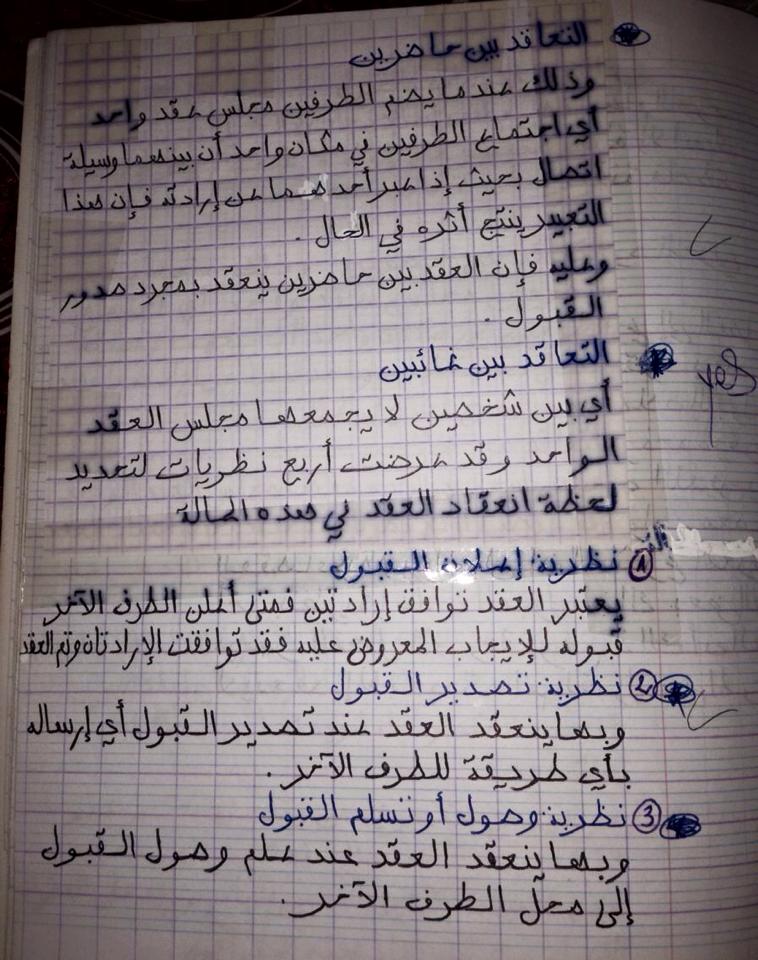 التعاقد بين حاضرين
وذلك عندما يضم الطرفين مجلس عقد واحد
أي اجتماع الطرفين في مكان واحد أن بينهما وسيلة
اتصال بحيث إذا عبر أحدهما عن إرادته فإن هذا
التعبير ينتج أثره في الحال .
وعليه فإن العقد بين حاضرين ينعقد بمجرد صدور
القبول .
التعاقد بين غائبين
yes
أي بين شخصين لا يجمعهما مجلس العقد
الواحد وقد عرضت أربع نظريات لتحديد
لحظة انعقاد العقد في هذه الحالة
① نظرية إعلان القبول
يعتبر العقد توافق إرادتين فمتى أعلن الطرف الآخر
قبوله للإيجاب المعروض عليه فقد توافقت الإرادتان وتم العقد
② نظرية تصدير القبول
وبها ينعقد العقد عند تصدير القبول أي إرساله
بأي طريقة للطرف الآخر .
③ نظرية وصول أو تسلم القبول
وبها ينعقد العقد عند علم وصول القبول
إلى محلّ الطرف الآخر .